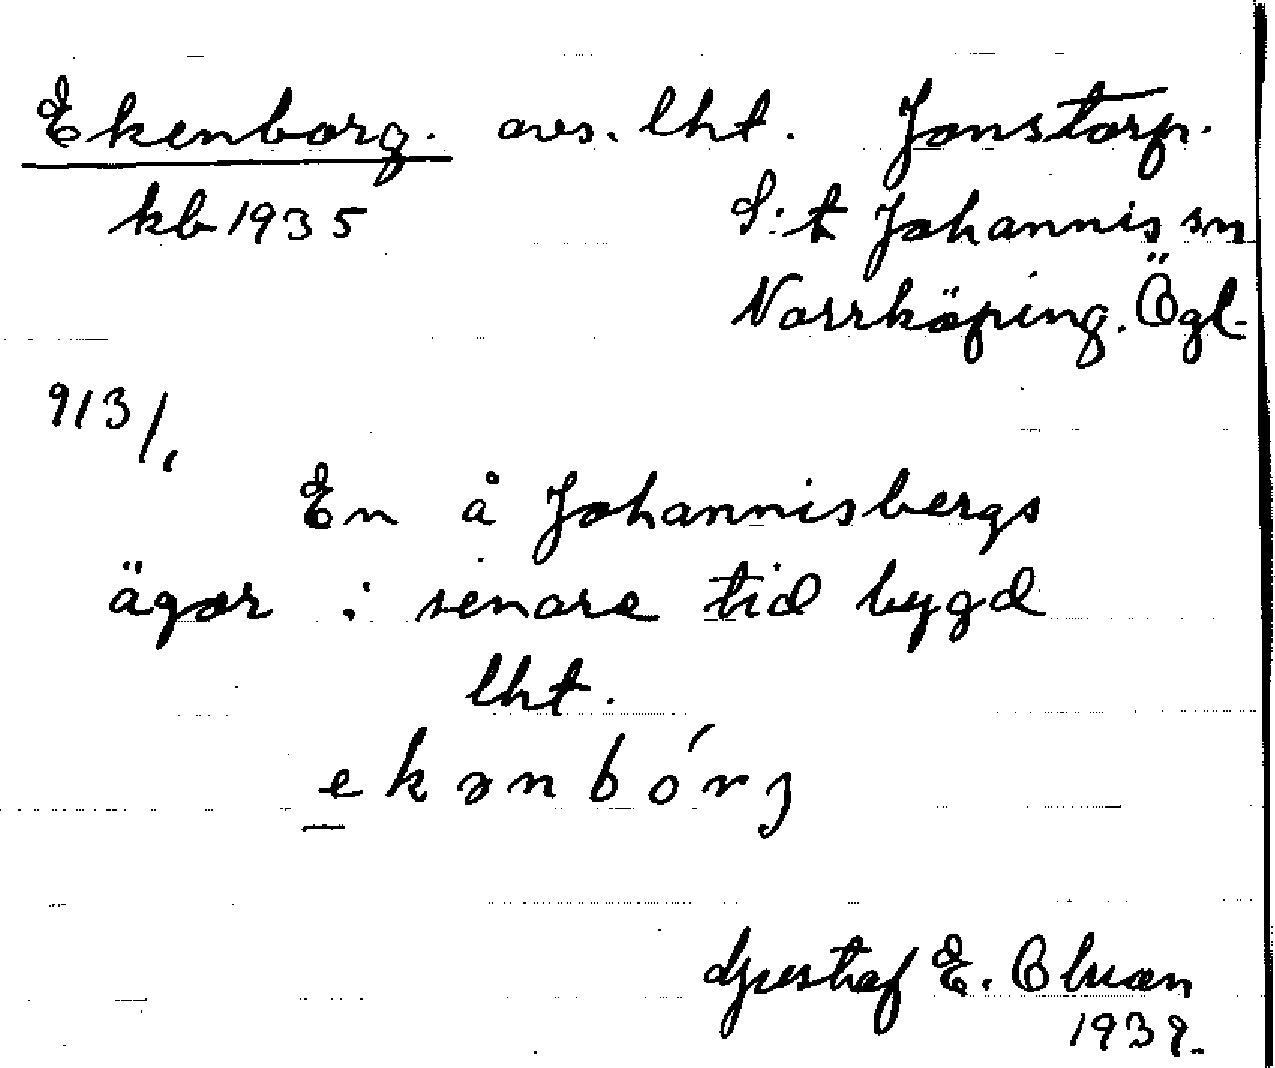 Ekenborg. avs. lht. Jonstorp.
kb 1935 S:t Johannis sn
Norrköping. Ögl
913/1
En å Johannisbergs
ägor i senare tid bygd
lht.
e k ə n b ó r j
Gustaf E.
1939.